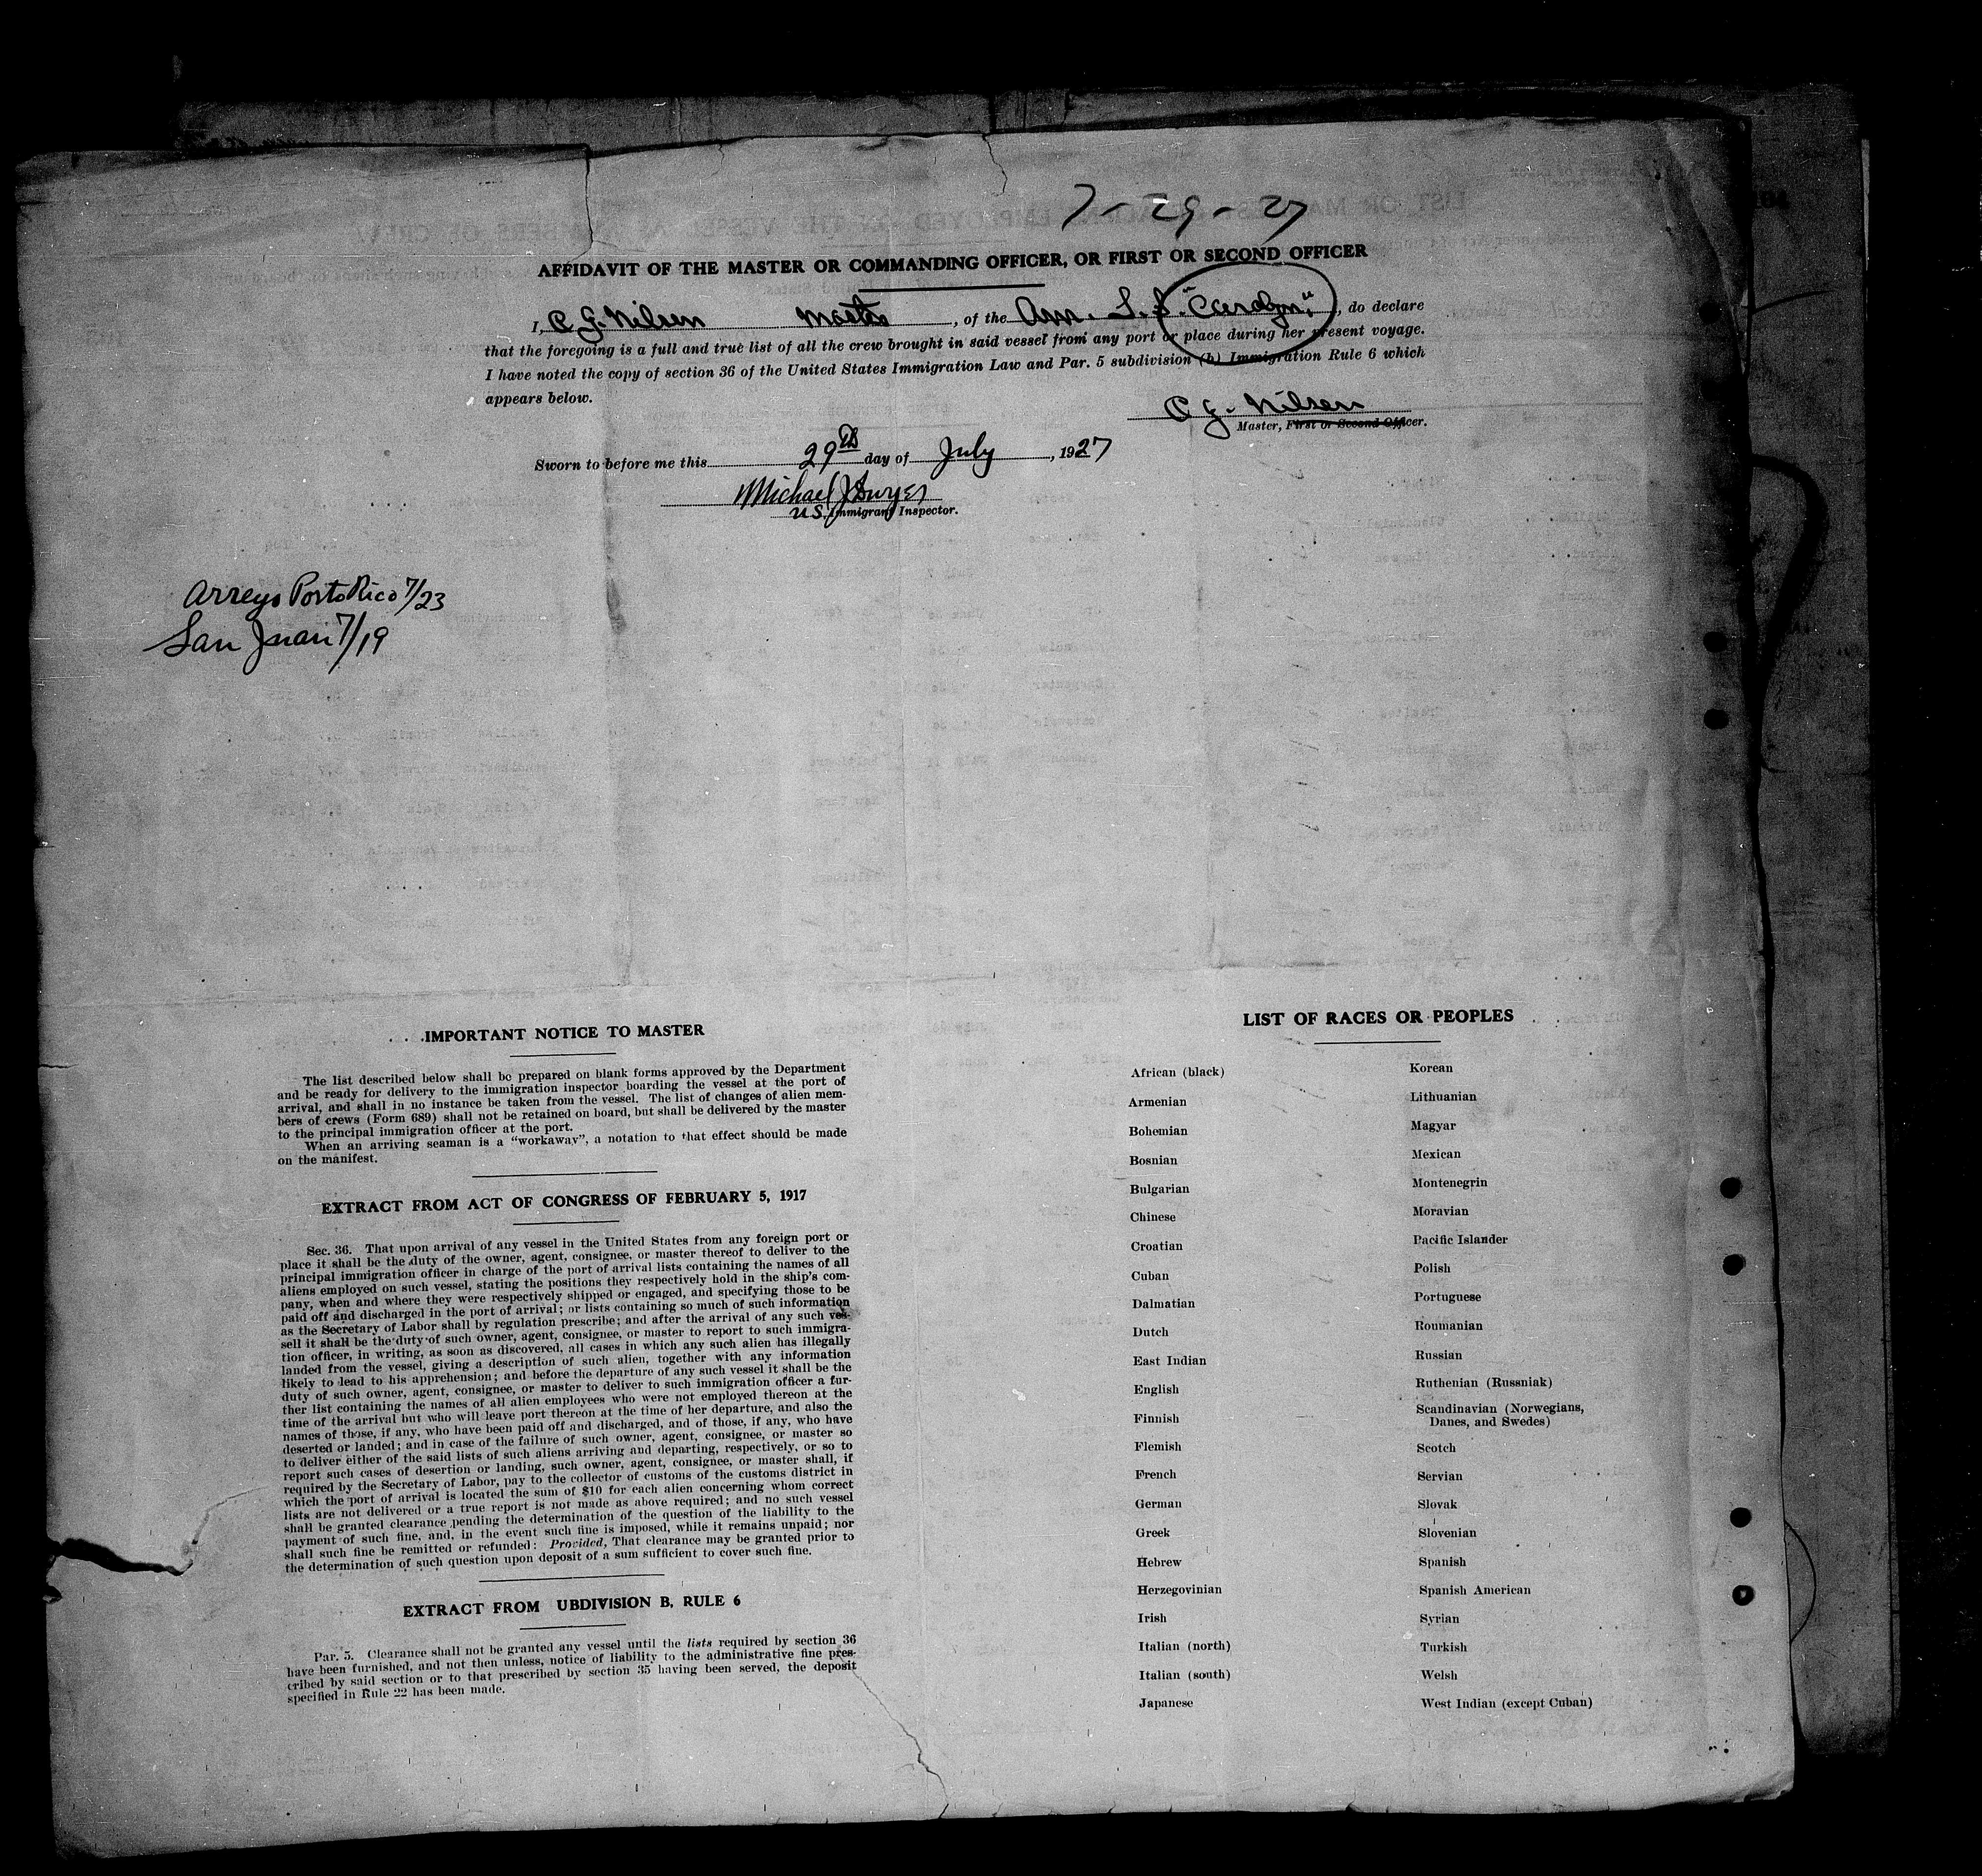 7-29-27
AFFIDAVIT OF THE MASTER OR COMMANDING OFFICER, OR FIRST OR SECOND OFFICER
I, C G. Nilsen Master, of the Am. S. S. "Carolyn", do declare
that the foregoing is a full and true list of all the crew brought in said vessel from any port or place during her present voyage.
I have noted the copy of section 36 of the United States Immigration Law and Par. 5 subdivision (b) Immigration Rule 6 which
appears below.
C G. Nilsen
Master, First or Second Officer.
Sworn to before me this 29th day of July, 1927
Michael J Dwyer
U.S. Immigrant Inspector.
Arreyo Porto Rico 7/23
San Juan 7/19
IMPORTANT NOTICE TO MASTER
The list described below shall be prepared on blank forms approved by the Department
and be ready for delivery to the immigration inspector boarding the vessel at the port of
arrival, and shall in no instance be taken from the vessel. The list of changes of alien mem-
bers of crews (Form 689) shall not be retained on board, but shall be delivered by the master
to the principal immigration officer at the port.
When an arriving seaman is a "workaway", a notation to that effect should be made
on the manifest.
EXTRACT FROM ACT OF CONGRESS OF FEBRUARY 5, 1917
Sec. 36. That upon arrival of any vessel in the United States from any foreign port or
place it shall be the duty of the owner, agent, consignee, or master thereof to deliver to the
principal immigration officer in charge of the port of arrival lists containing the names of all
aliens employed on such vessel, stating the positions they respectively hold in the ship's com-
pany, when and where they were respectively shipped or engaged, and specifying those to be
paid off and discharged in the port of arrival; or lists containing so much of such information
as the Secretary of Labor shall by regulation prescribe; and after the arrival of any such ves-
sell it shall be the duty of such owner, agent, consignee, or master to report to such immigra-
tion officer, in writing, as soon as discovered, all cases in which any such alien has illegally
landed from the vessel, giving a description of such alien, together with any information
likely to lead to his apprehension; and before the departure of any such vessel it shall be the
duty of such owner, agent, consignee, or master to deliver to such immigration officer a fur-
ther list containing the names of all alien employees who were not employed thereon at the
time of the arrival but who will leave port thereon at the time of her departure, and also the
names of those, if any, who have been paid off and discharged, and of those, if any, who have
deserted or landed; and in case of the failure of such owner, agent, consignee, or master so
to deliver either of the said lists of such aliens arriving and departing, respectively, or so to
report such cases of desertion or landing, such owner, agent, consignee, or master shall, if
required by the Secretary of Labor, pay to the collector of customs of the customs district in
which the port of arrival is located the sum of $10 for each alien concerning whom correct
lists are not delivered or a true report is not made as above required; and no such vessel
shall be granted clearance pending the determination of the question of the liability to the
payment of such fine, and, in the event such fine is imposed, while it remains unpaid; nor
shall such fine be remitted or refunded: Provided, That clearance may be granted prior to
the determination of such question upon deposit of a sum sufficient to cover such fine.
EXTRACT FROM UBDIVISION B, RULE 6
Par. 5. Clearance shall not be granted any vessel until the lists required by section 36
have been furnished, and not then unless, notice of liability to the administrative fine pres-
cribed by said section or to that prescribed by section 35 having been served, the deposit
specified in Rule 22 has been made.
LIST OF RACES OR PEOPLES
African (black)
Armenian
Bohemian
Bosnian
Bulgarian
Chinese
Croatian
Cuban
Dalmatian
Dutch
East Indian
English
Finnish
Flemish
French
German
Greek
Hebrew
Herzegovinian
Irish
Italian (north)
Italian (south)
Japanese
Korean
Lithuanian
Magyar
Mexican
Montenegrin
Moravian
Pacific Islander
Polish
Portuguese
Roumanian
Russian
Ruthenian (Russniak)
Scandinavian (Norwegians,
Danes, and Swedes)
Scotch
Servian
Slovak
Slovenian
Spanish
Spanish American
Syrian
Turkish
Welsh
West Indian (except Cuban)